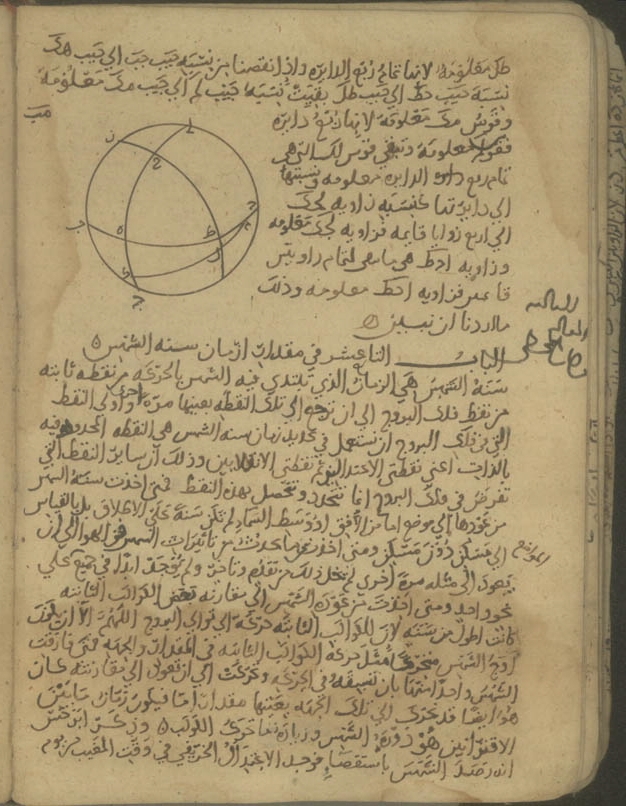 طل معلومة لانها تمام ربع الدايره واذا نقصنا من نسبة جيب جب الى جيب هك
نسبة جيب حط الى جيب طل بقيت نسبة جيب لم الى جيب مك معلومة
وقوس مك معلومة لانها ربع دايره مب
فقوس معلومة وتبقى قوس لك التي هي
تمام ربع الدايره معلومه ونسبتها
الى دايرتها كنسبة زاويه لحك
الى اربع زوايا قايمه فزاويه لحك معلومه
وزاويه احط هي لتمام زاويتين
قا فزاويه احط معلومه وذلك
ما اردنا ان نبين
الباب الثاني عشر في مقدار ازمان سنه الشمس
سنة الشمس هي الزمان الذي تبتدي فيه الشمس بالحركه من نقطه ثابته
من نقط فلك البروج الى ان ترجع الى تلك النقطه بعينها مره اخرى واولى النقط
التي في فلك البروج ان تستعمل في تحديد زمان سنه الشمس هي النقطه المحدوده فيه
بالذات اعني نقطتي الاعتدالين او نقطتي الانقلابين وذلك ان ساير النقط التي
تفرض في فلك البروج انما تتحدد وتتحصل بهذه النقط فمتى اخذت سنة الشمس
من عودها الى موضع اما من الافق او وسط السماء لم تكن سنة على الاطلاق بل بالقياس
الى مسكن دون مسكن ومتى اخذت مما يحدث من تاثيرات الشمس في الهوا الى ان
يعود الى مثله مرة اخرى لم يخل ذلك من تقدم وتاخر ولم يوجد ابدا في جميع على
نحو واحد ومتى اخذت من عودة الشمس الى مقارنه بعض الكواكب الثابته
كانت اطول من سنته لان للكواكب الثابته حركة الى توالي البروج اللهم الا ان يكون
اوج الشمس متحركا مثل حركه الكواكب الثابته في المقدار والجهه فمتى فارقت
الشمس واحدا منها بان تسبقه في الحركه وتحركت الى ان تعود الى مقارنته كان
هو ايضا قد تحرك الى تلك الجهة بعينها مقدارا ما فيكون زمان ما بين
الاقترانين هو دورة الشمس وزيادة ما تحرك الكوكب وذكر ابرخس
انه رصد الشمس باستقصاء فوجد الاعتدال الخريفي في وقت المغيب من يوم